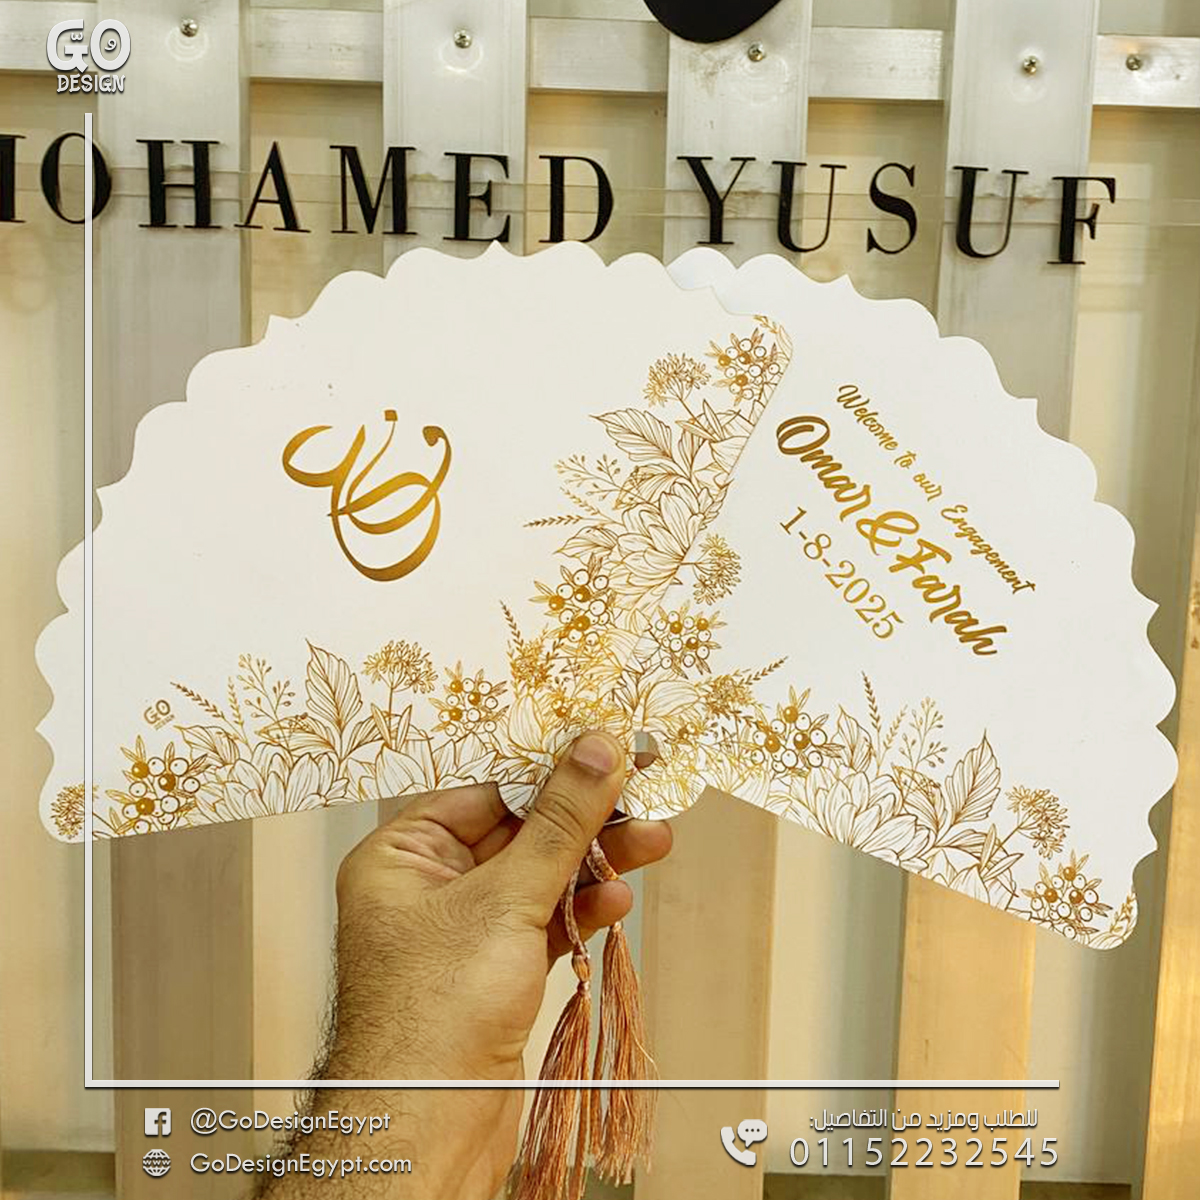 GO
DESIGN
MOHAMED YUSUF
Welcome to our Engagement
Omar & Farah
1-8-2025
GO
@GoDesignEgypt
GoDesignEgypt.com
للطلب ومزيد من التفاصيل:
01152232545